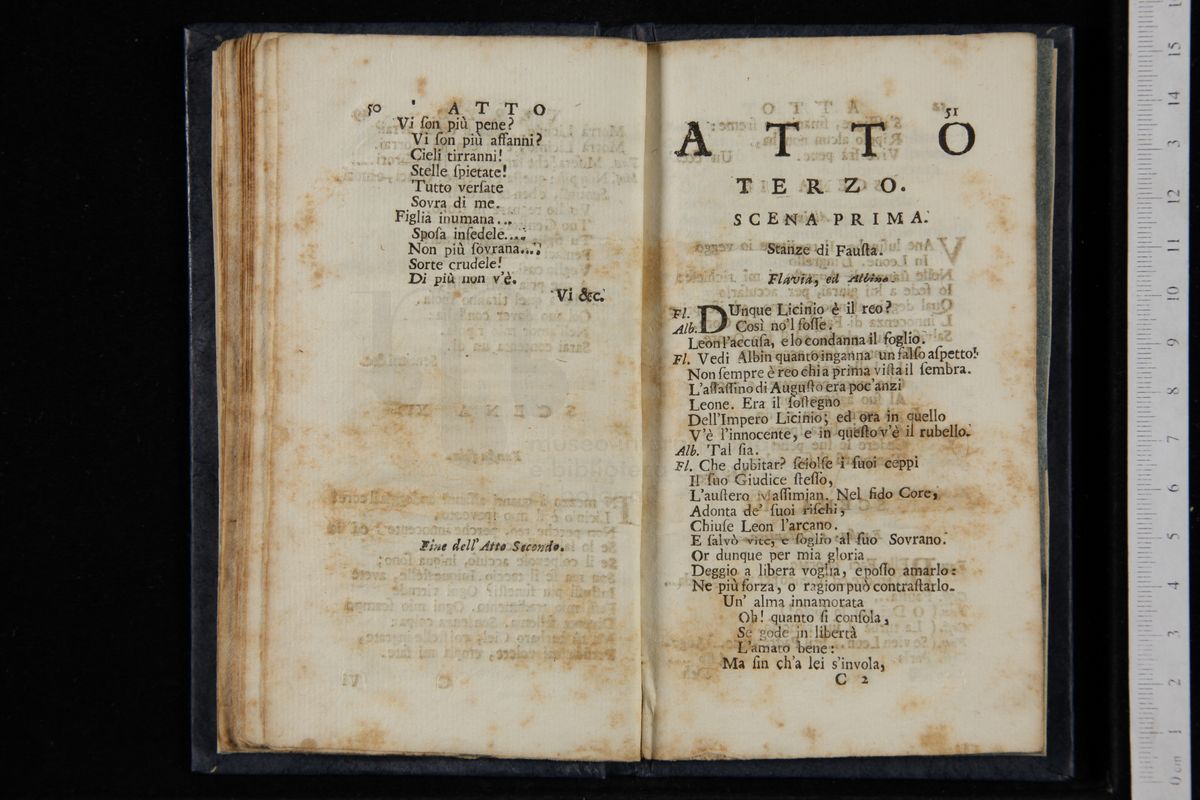 50 ATTO
Vi ſon più pene?
Vi ſon più affanni?
Cieli tirranni!
Stelle ſpietate!
Tutto verſate
Sovra di me.
Figlia inumana...
Spoſa infedele....
Non più ſovrana...!
Sorte crudele!
Di più non v'è.
Vi &c.
Fine dell'Atto Secondo.
51
ATTO
TERZO.
SCENA PRIMA.
Stanze di Fauſta.
Flavia, ed Albino.
Fl. DUnque Licinio è il reo?
Alb. Così no'l foſſe.
Leon l'accuſa, e lo condanna il foglio.
Fl. Vedi Albin quanto inganna un falſo aſpetto!
Non ſempre è reo chi a prima viſta il ſembra.
L'aſſaſſino di Auguſto era poc'anzi
Leone. Era il ſoſtegno
Dell'Impero Licinio; ed ora in quello
V'è l'innocente, e in queſto v'è il rubello.
Alb. Tal ſia.
Fl. Che dubitar? ſciolſe i ſuoi ceppi
Il ſuo Giudice ſteſſo,
L'auſtero Maſſimian. Nel fido Core,
Adonta de' ſuoi riſchi,
Chiuſe Leon l'arcano.
E ſalvò vite, e ſoglio al ſuo Sovrano.
Or dunque per mia gloria
Deggio a libera voglia, e poſſo amarlo:
Ne più forza, o ragion può contraſtarlo.
Un' alma innamorata
Oh! quanto ſi conſola,
Se gode in libertà
L'amato bene:
Ma ſin ch'a lei s'invola,
C 2